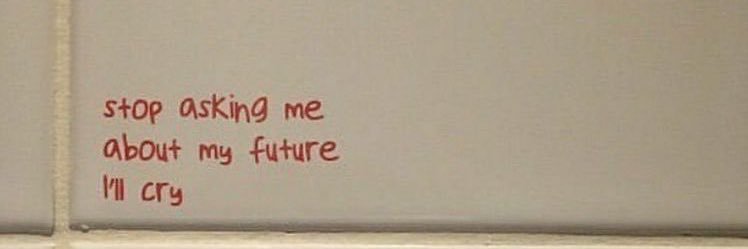 stop asking me
about my future
I'll cry